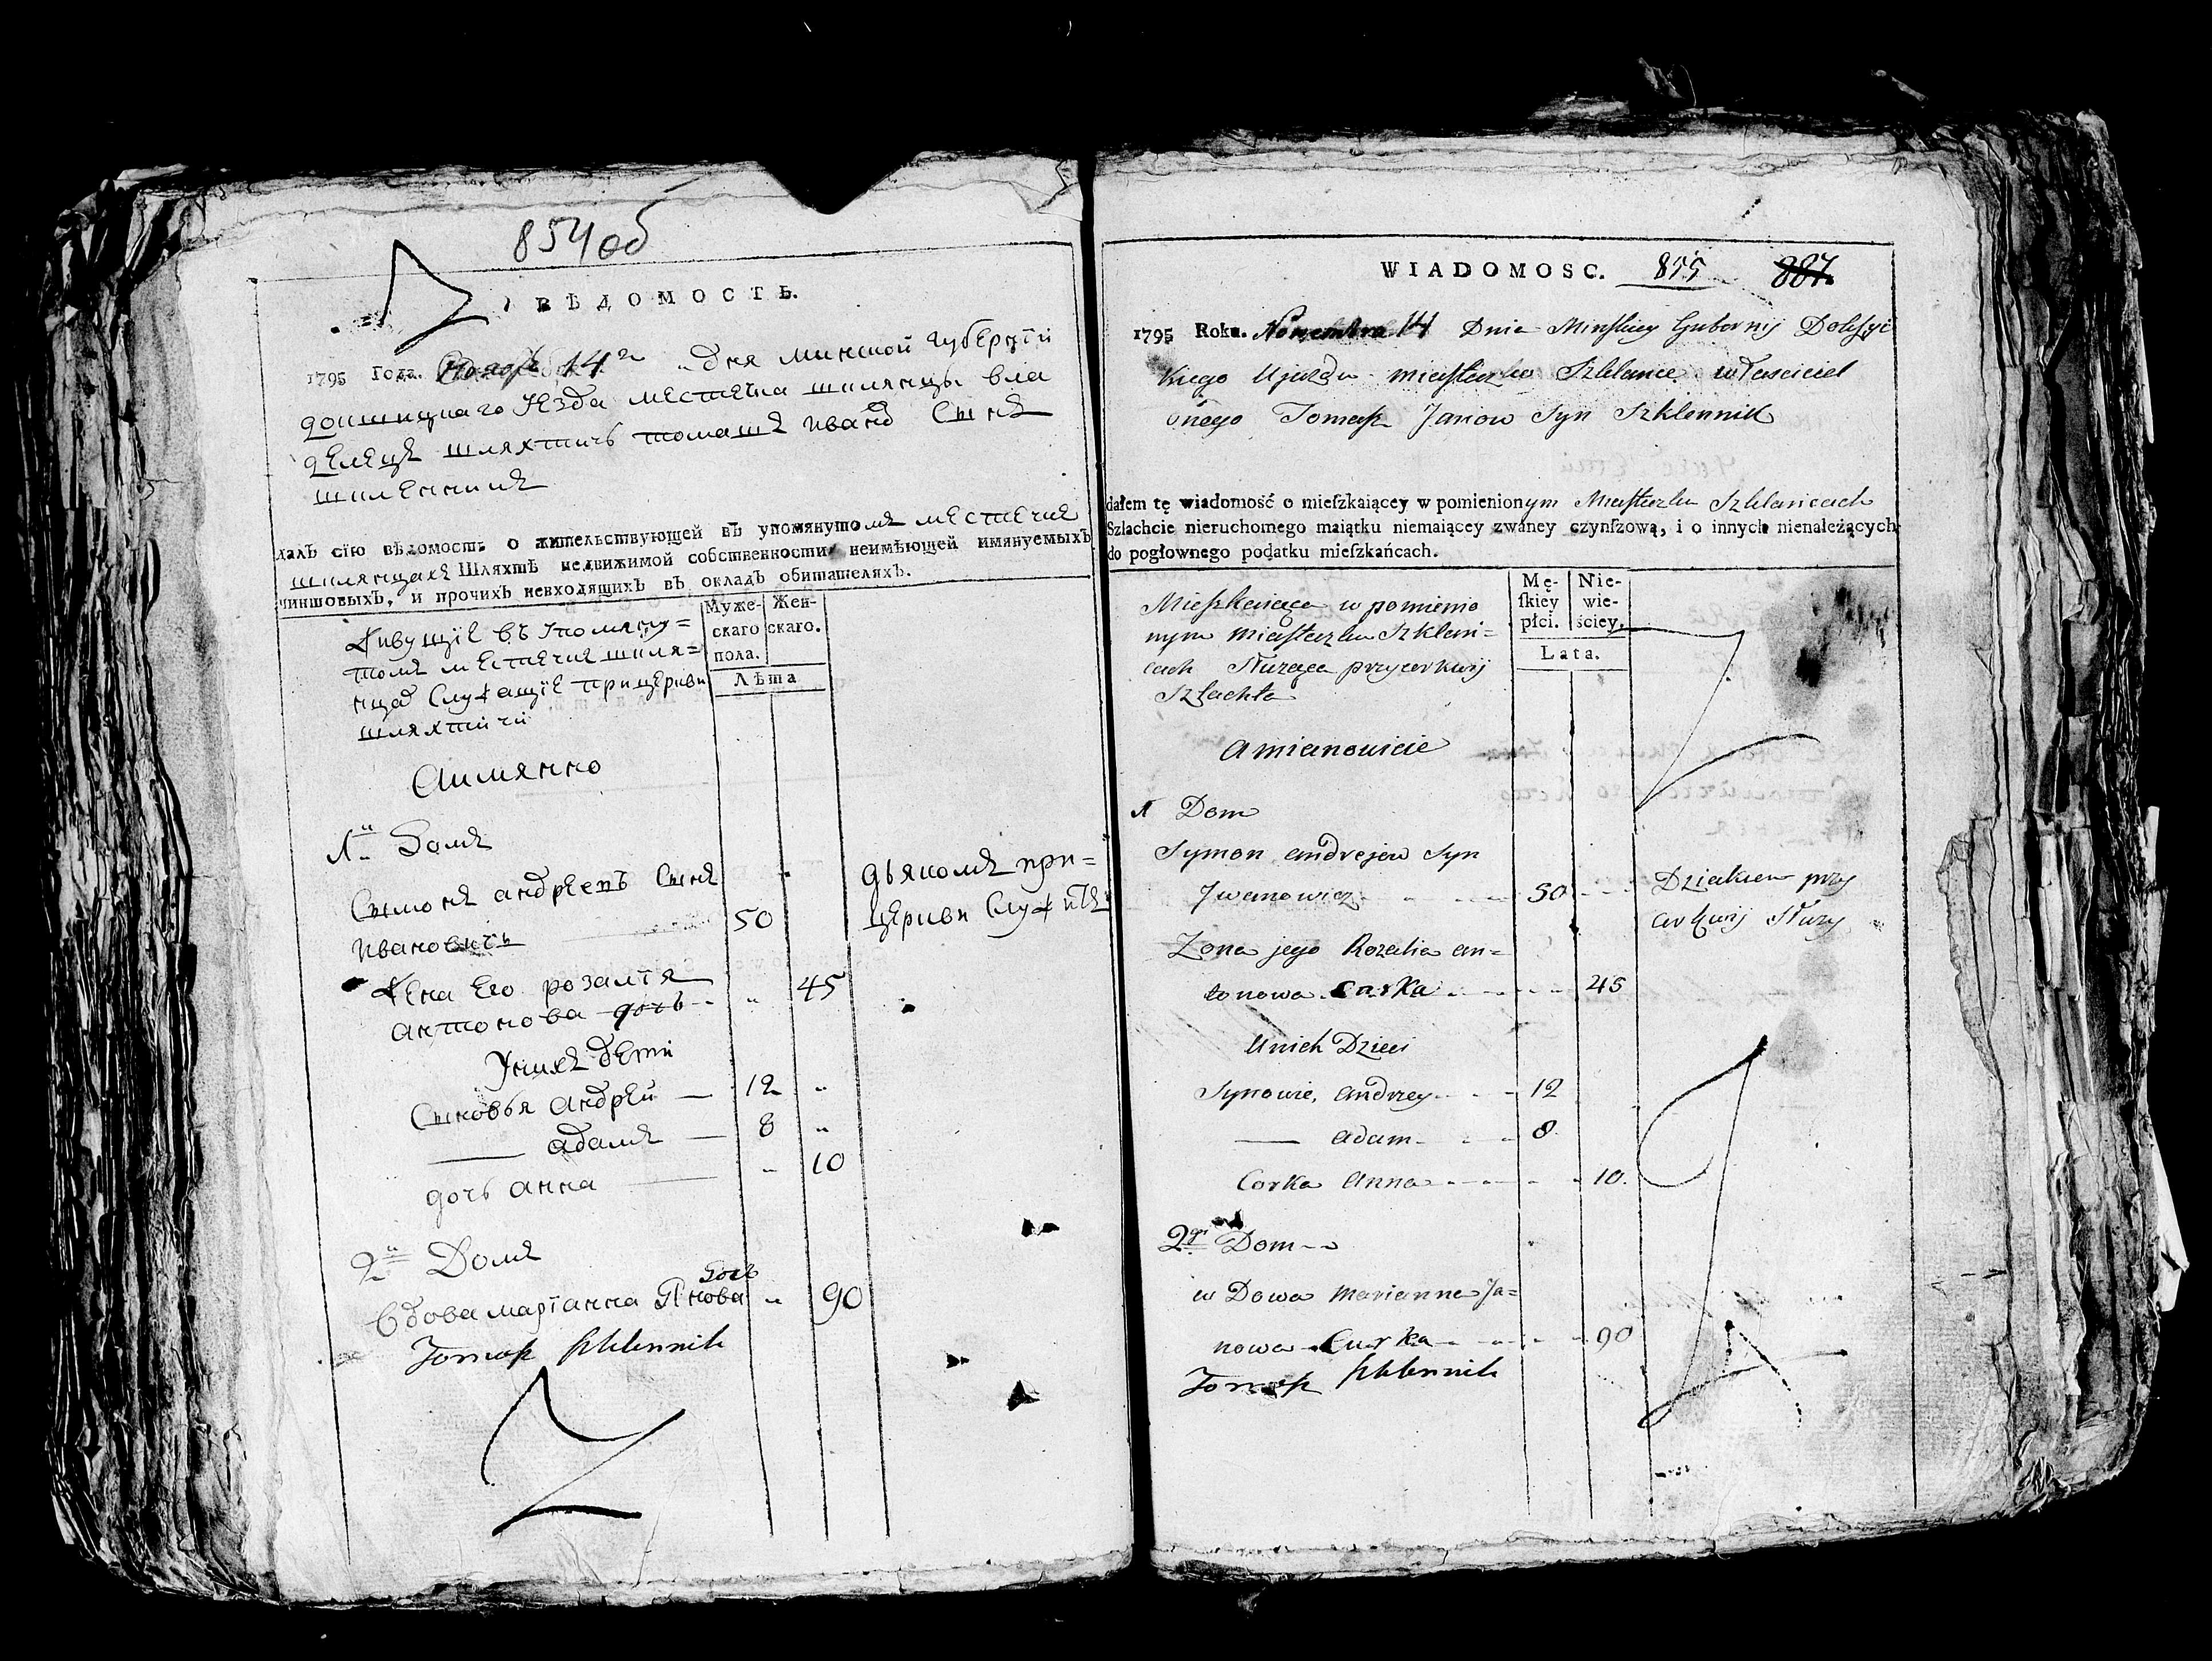 854об
ВѢДОМОСТЬ.
1795 Года. Ноября 14го дня минской губернїи
докшицкаго уезда местечка шклянцы вла
делецъ шляхтичъ томашъ иванов сынъ
шкленникъ
далъ сїю вѣдомость о жительствующей въ упомянутомъ местечке
шклянцахъ Шляхтѣ недвижимой собственности неимѣющей имянуемыхъ
чиншовыхъ, и прочихъ невходящихъ въ окладъ обитателяхъ.
Муже-скаго пола. Жен-скаго.
Лѣта
Живущїе въ упомяну=
томъ местечке шкля=
нцах служащїе прицеркви
шляхтичи
Аимянно
1й Домъ
Сымонъ андреевъ сынъ
ивановичъ 50
дьякомъ при=
церкви служитъ
Жена его розалїя
антонова дочь 45
Унихъ дети
Сыновья андрей — 12
адамъ — 8
дочь анна 10
2й Домъ
дочь
Вдова марїанна Янова 90
Tomasz Szklennik
WIADOMOSC. 855 887
1795 Roku. Nowembra 14 Dnia Minskiey Gubernij Dokszyc
kiego Ujazdu miasteczka Szklaniec właściciel
onego Tomasz Janow Syn Szklennik
dałem tę wiadomość o mieſzkaiącey w pomienionym Miasteczku Szklancach
Szlachcie nieruchomego maiątku niemaiącey zwaney czynſzową, i o innych nienależących
do pogłownego podatku mieſzkańcach.
Mę-ſkiey płci. Nie-wie-ściey.
Lata.
Mieszkaiąca w pomienio
nym miasteczku Szklani=
cach Służąca przycerkwij
Szlachta
Amianowicie
1 Dom
Symon Andrejew Syn
Jwanowicz 50
Dziakiem przy
cerkwij służy
Zona jego Rozalia an=
tonowa Carka 45
Unich Dzieci
Synowie, Andrzey 12
Adam 8
Corka Anna 10.
2gi Dom
w Dowa Marianna Ja=
nowa Curka 90
Tomasz Szklennik